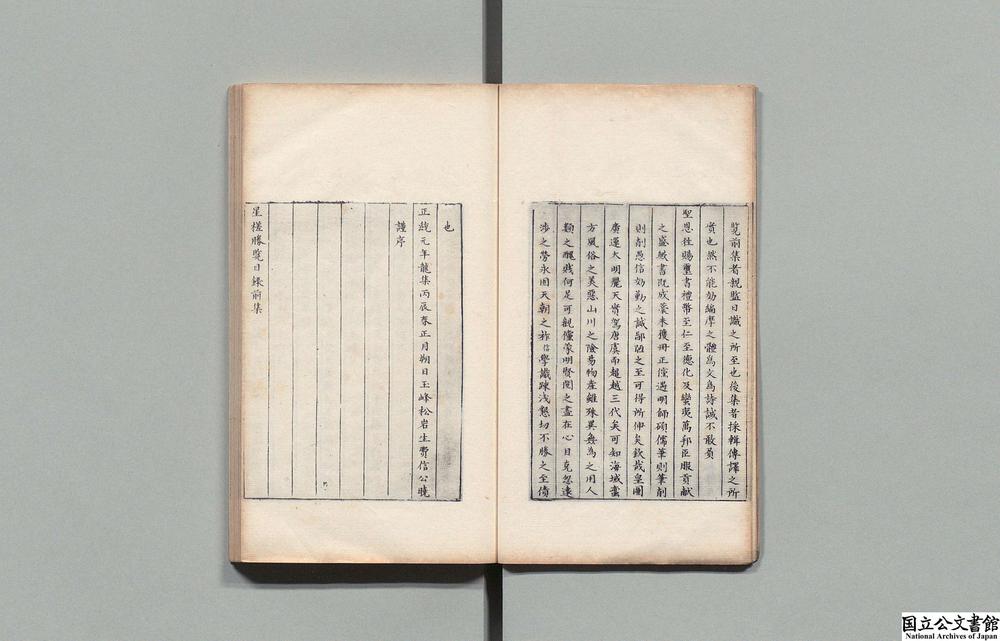 覽前集者親監目識之所至也後集者採輯傳譯之所
實也然不能効編摩之體為文為詩誠不敢負
聖恩往賜璽書禮幣至仁至德化及蠻夷萬邦臣服貢献
之盛敏書既成藁未獲冊正儻遇明師碩儒筆則筆削
則削愚信幼勤之誠鄙陋之至可得所伸矣欽哉皇圖
廣運大明麗天實駕唐虞而超越三代矣可知海域
方風俗之美惡山川之險易物產雖殊異無為之用人
類之醜賤何足可觀僅蒙明賢閱之盡在心目克忽遠
涉之勞永固天朝之祚信學識疎浅懇切不勝之至
也
正統元年龍集丙辰春正月朔日玉峰松岩生費信公曉
謹序
星槎勝覽目錄前集
国立公文書館
National Archives of Japan